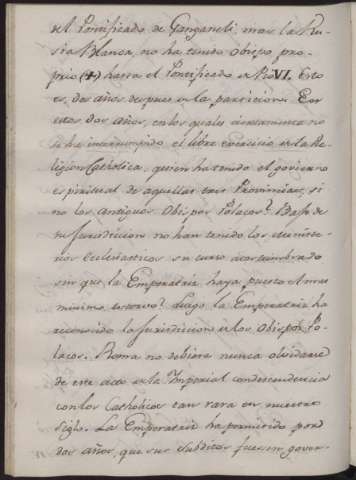 del Pontificado de Ganganeli, mas la Ru-
sia Blanca, no ha tenido Obispo pro-
prio (+) hasta el Pontificado de Pio VI. Esto
es, dos años despues de la particion. En
estos dos años, en los quales ciertamente no
se ha interrumpido el libre exercicio de la Re-
ligion Catholica, quien ha tenido el govierno
espiritual de aquellas tres Provincias, si
no los antiguos Obispos Polacos? Bajo de
su Jurisdiccion no han tenido los ministe-
rios Ecclesiasticos su curso acostumbrado
sin que la Emperatriz haya puesto el mas
minimo estorvo? Luego la Emperatriz ha
reconocido la Jurisdiccion de los Obispos Po-
lacos. Roma no debiera nunca olvidarse
de este acto de la Imperial condescendencia
con los Catholicos tan rara en nuestro
siglo. La Emperatriz ha permitido por
dos años, que sus subditos fuesen gover-